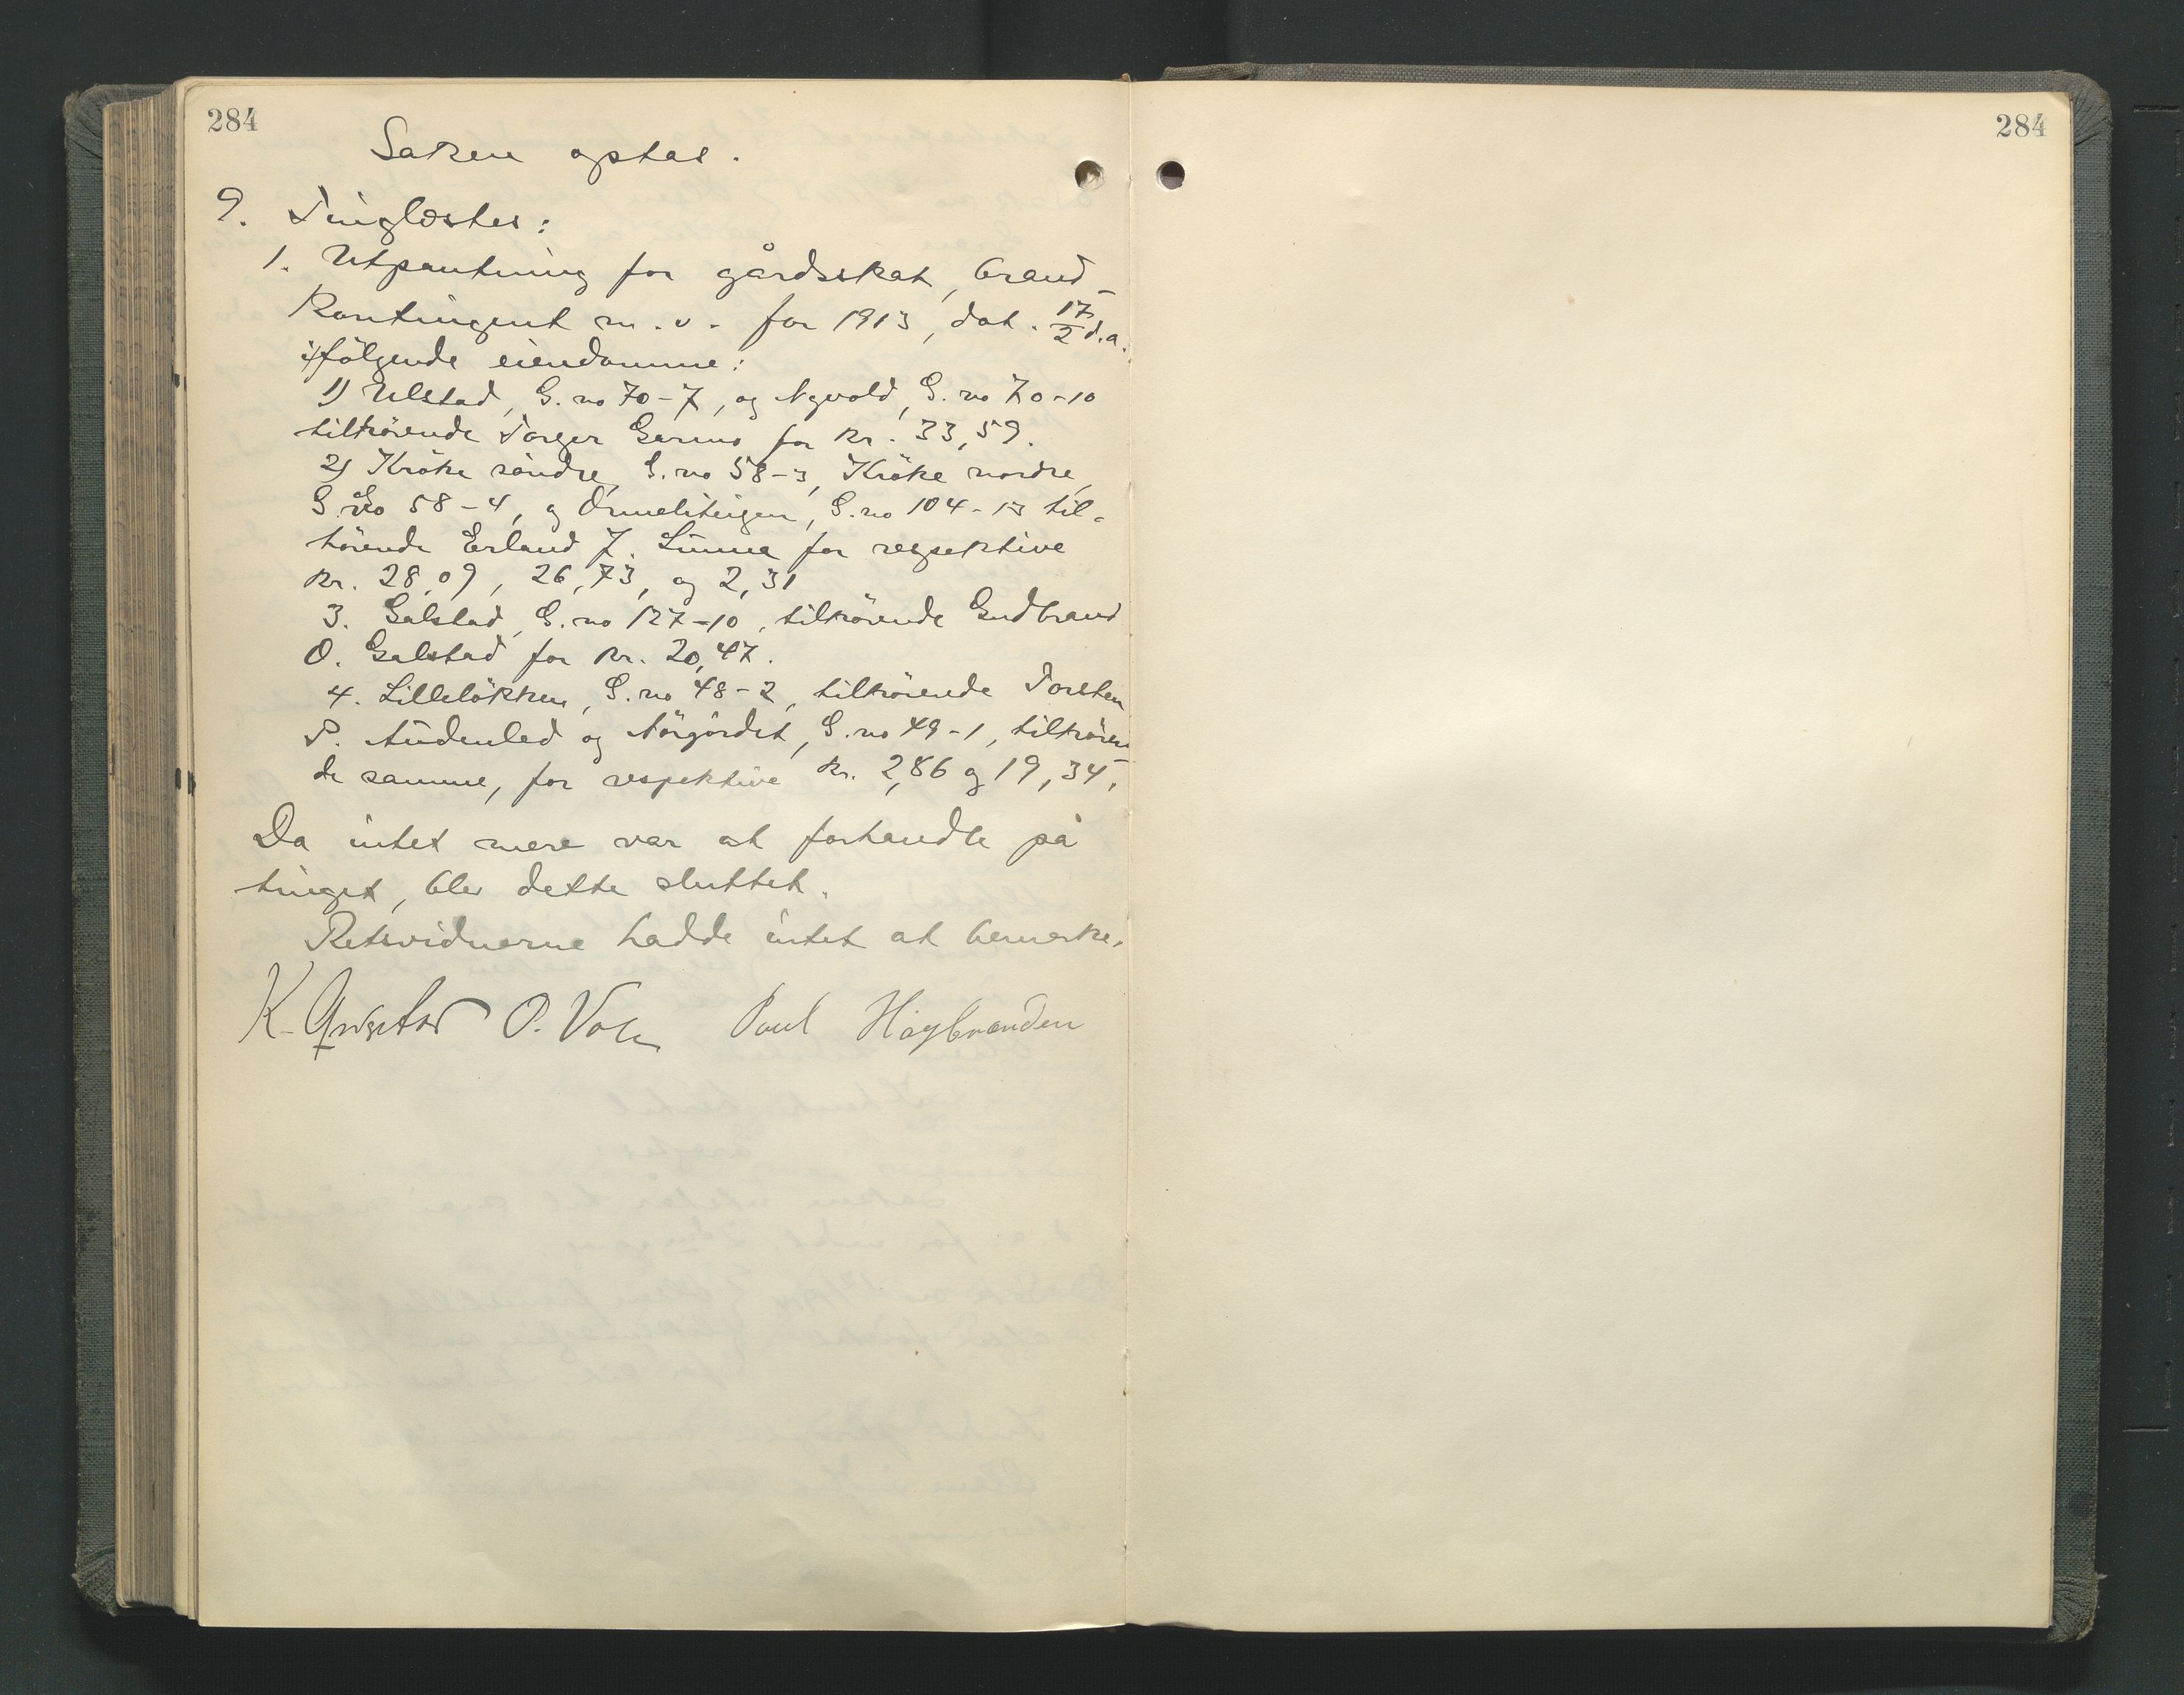 284
Saken optas.
9. Tinglæstes:
1. Utpantning for gårdsskat, brand-
kontingent m.v. for 1913, dat. 17/2 d.a.
i følgende eiendomme:
1) Ulstad, G.no 70-7, og Nyvold, G.no 70-10
tilhørende Torger Garmo for kr. 33,59.
2) Kröke söndre, G.no 58-3, Kröke nordre,
G.no 58-4, og G.no 104-13 til-
hørende Erland J. for respektive
kr. 28,09, 26,73, og 2,31
3. Galstad, G.no 127-10, tilhörende Gudbrand
O. Galstad for kr. 20,47.
4. Lillelökken, G.no 48-2, tilhörende Torsten
P. Audenled og Nörgårdet, G.no 49-1, tilhören
de samme, for respektive kr. 2,86 og 19,34.
Da intet mere var at forhandle på
tinget, blev dette sluttet.
Retsvidnerne hadde intet at bemerke.
K. O. Paul Høybranden
284